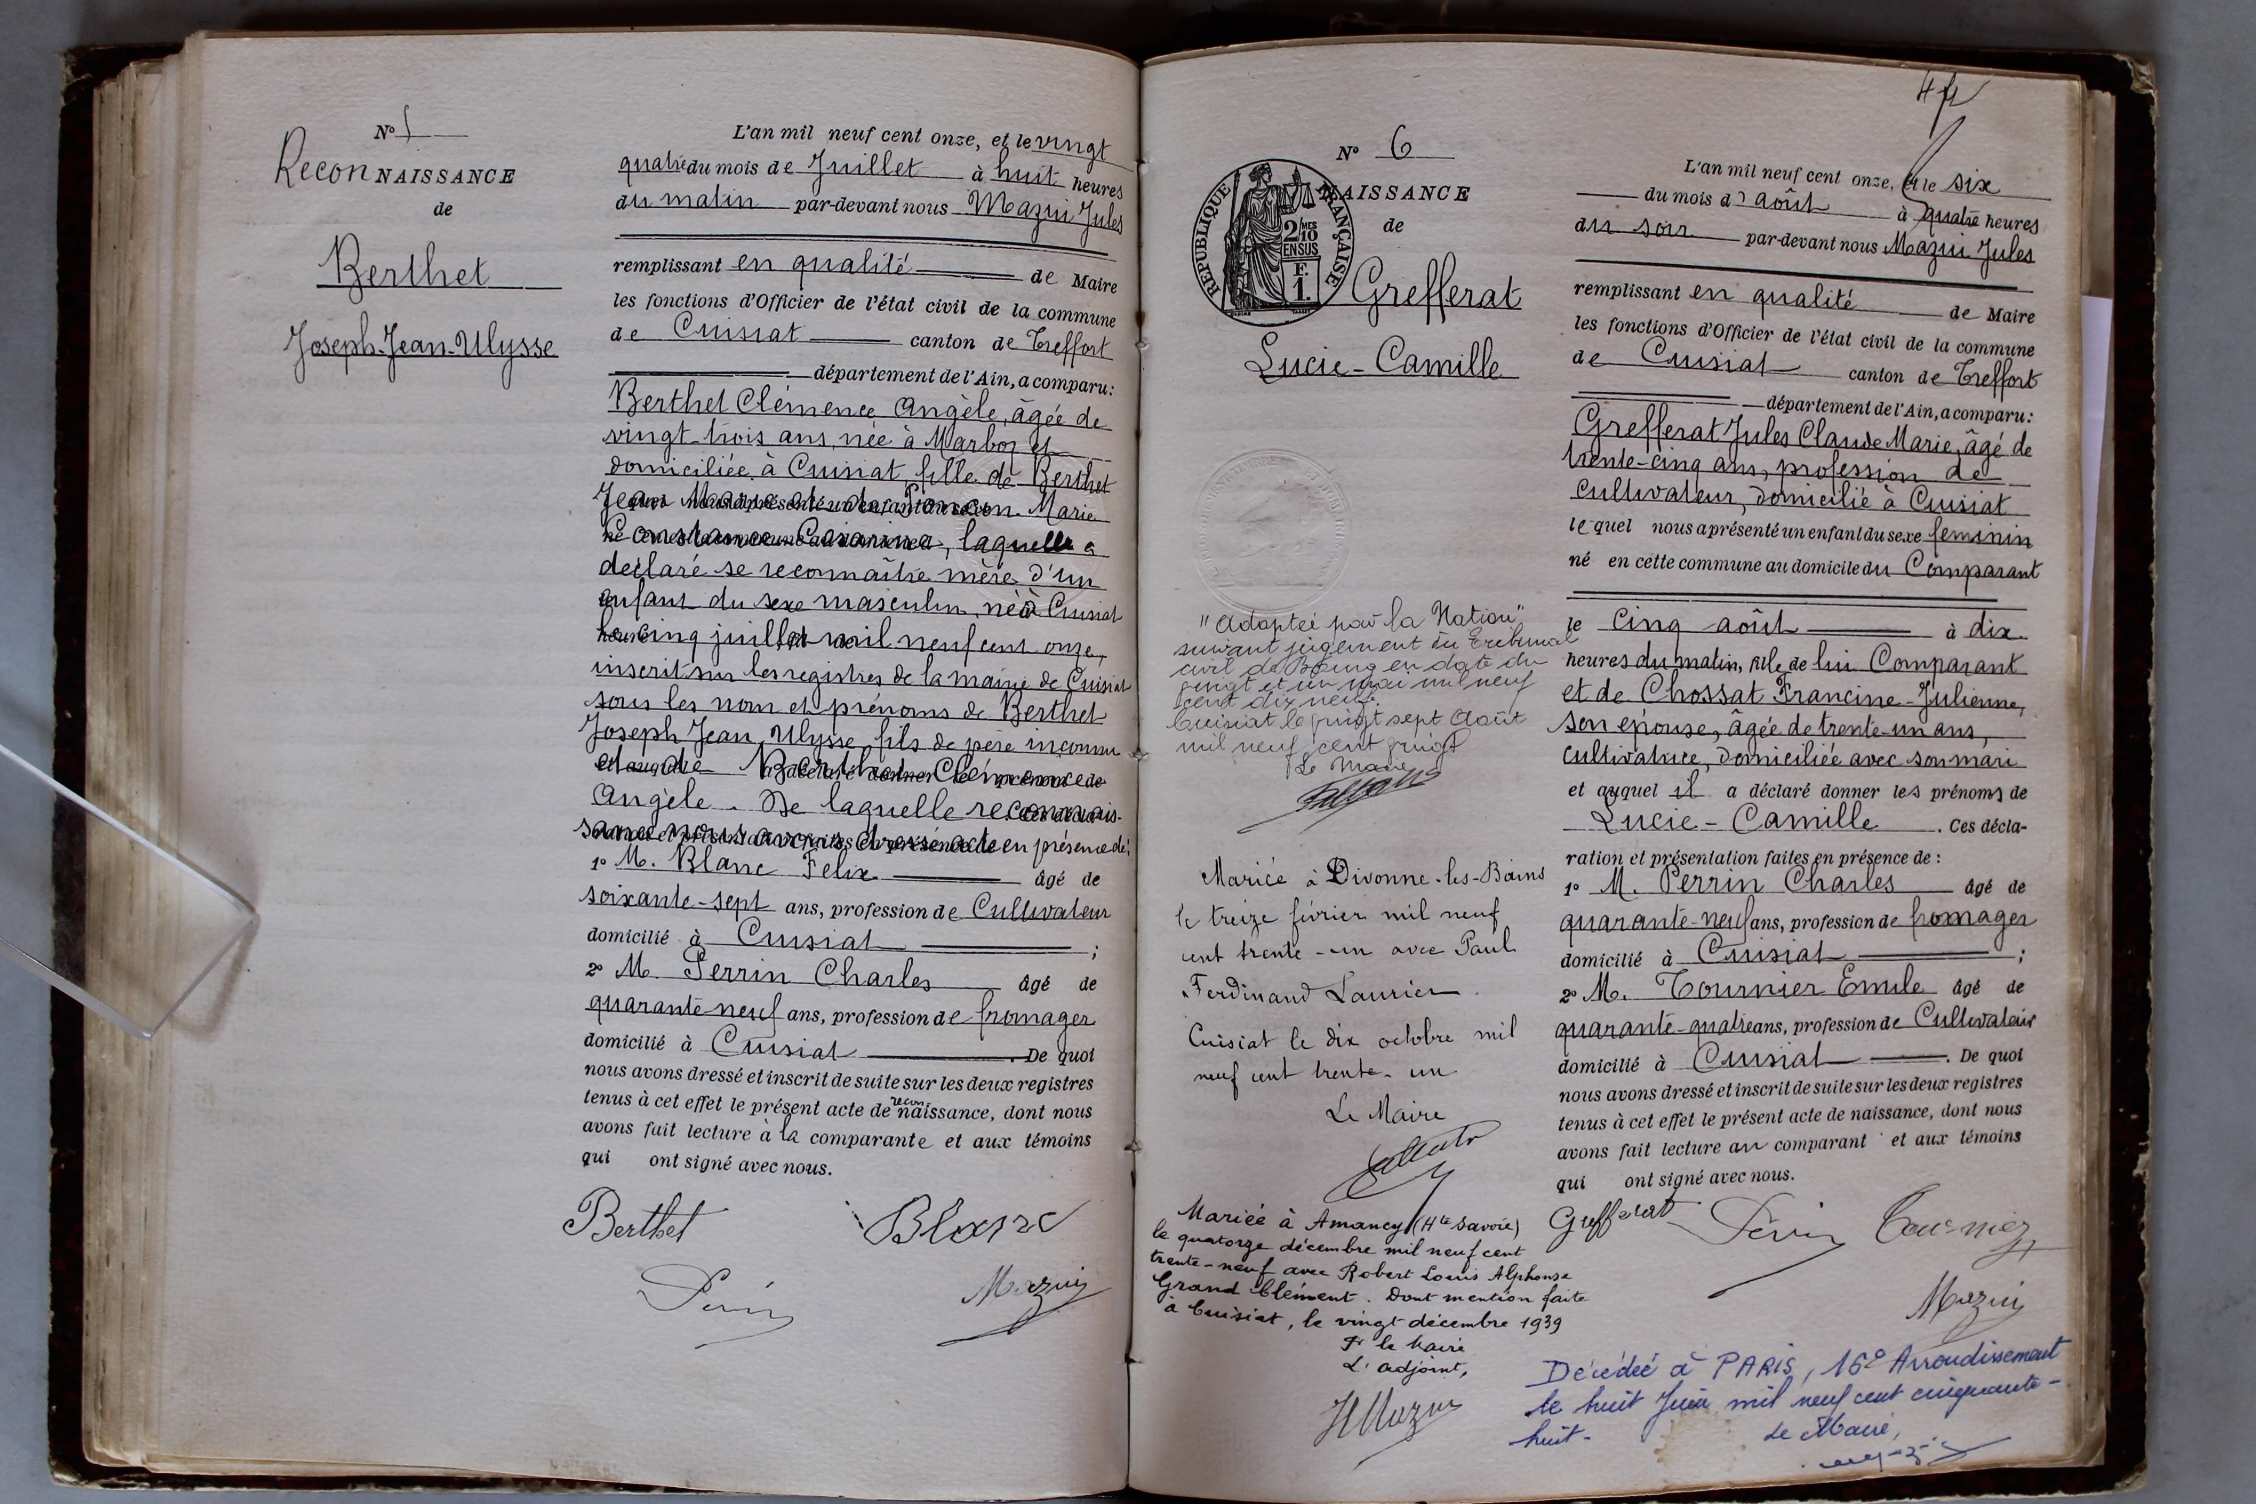 N° 5
ReconNAISSANCE
de
Berthet
Joseph-Jean-Ulysse
L'an mil neuf cent onze, et le vingt
quatre du mois de Juillet à huit heures
du matin par-devant nous Mazui Jules
remplissant en qualité de Maire
les fonctions d'Officier de l'état civil de la commune
de Cuisiat canton de Treffort
département de l'Ain, a comparu:
Berthet Clémence Angèle, âgée de
vingt-trois ans, née à Marboz et
domiciliée à Cuisiat, fille de Berthet
Jean Marie et de Poncin Marie
Constance Césarina, laquelle a
déclaré se reconnaître mère d'un
enfant du sexe masculin, né à Cuisiat
le cinq juillet mil neuf cent onze,
inscrit sur les registres de la mairie de Cuisiat
sous les nom et prénoms de Berthet
Joseph Jean Ulysse fils de père inconnu
et de Berthet Clémence
Angèle. De laquelle reconnais-
sance nous avons dressé acte en présence de:
1° M. Blanc Felix âgé de
soixante-sept ans, profession de Cultivateur
domicilié à Cuisiat ;
2° M. Perrin Charles âgé de
quarante neuf ans, profession de fromager
domicilié à Cuisiat . De quoi
nous avons dressé et inscrit de suite sur les deux registres
tenus à cet effet le présent acte de reconnaissance, dont nous
avons fait lecture à la comparante et aux témoins
qui ont signé avec nous.
Berthet Blanc
Périn Mazui
N° 6
NAISSANCE
de
RÉPUBLIQUE FRANÇAISE
2 MES
10
EN SUS
F.
1.
Grefferat
Lucie-Camille
"Adoptée par la Nation"
suivant jugement du Tribunal
civil de Bourg en date du
vingt et un mai mil neuf
cent dix neuf.
Cuisiat le vingt sept Août
mil neuf cent vingt
Le Maire
Mariée à Divonne-les-Bains
le treize février mil neuf
cent trente-un avec Paul
Ferdinand Laurier.
Cuisiat le dix octobre mil
neuf cent trente-un
Le Maire
Mariée à Amancy (Hte Savoie)
le quatorze décembre mil neuf cent
trente-neuf avec Robert Louis Alphonse
Grand Clément. Dont mention faite
à Cuisiat, le vingt décembre 1939
Pr le Maire
L'adjoint,
HMazui
L'an mil neuf cent onze, et le six
du mois d'août à quatre heures
du soir par-devant nous Mazui Jules
remplissant en qualité de Maire
les fonctions d'Officier de l'état civil de la commune
de Cuisiat canton de Treffort
département de l'Ain, a comparu:
Grefferat Jules Claude Marie, âgé de
trente-cinq ans, profession de
cultivateur, domicilié à Cuisiat
lequel nous a présenté un enfant du sexe feminin
né en cette commune au domicile du Comparant
le cinq août à dix
heures du matin, fille de lui Comparant
et de Chossat Francine-Julienne,
son épouse, âgée de trente-un ans,
cultivatrice, domiciliée avec son mari
et auquel il a déclaré donner les prénoms de
Lucie-Camille . Ces décla-
ration et présentation faites en présence de :
1° M. Perrin Charles âgé de
quarante-neuf ans, profession de fromager
domicilié à Cuisiat ;
2° M. Tournier Emile âgé de
quarante-quatre ans, profession de Cultivateur
domicilié à Cuisiat . De quoi
nous avons dressé et inscrit de suite sur les deux registres
tenus à cet effet le présent acte de naissance, dont nous
avons fait lecture au comparant et aux témoins
qui ont signé avec nous.
Grefferat Périn Tournier
Mazui
Décédée à PARIS, 16e Arrondissement
le huit Juin mil neuf cent cinquante-
huit.
Le Maire,